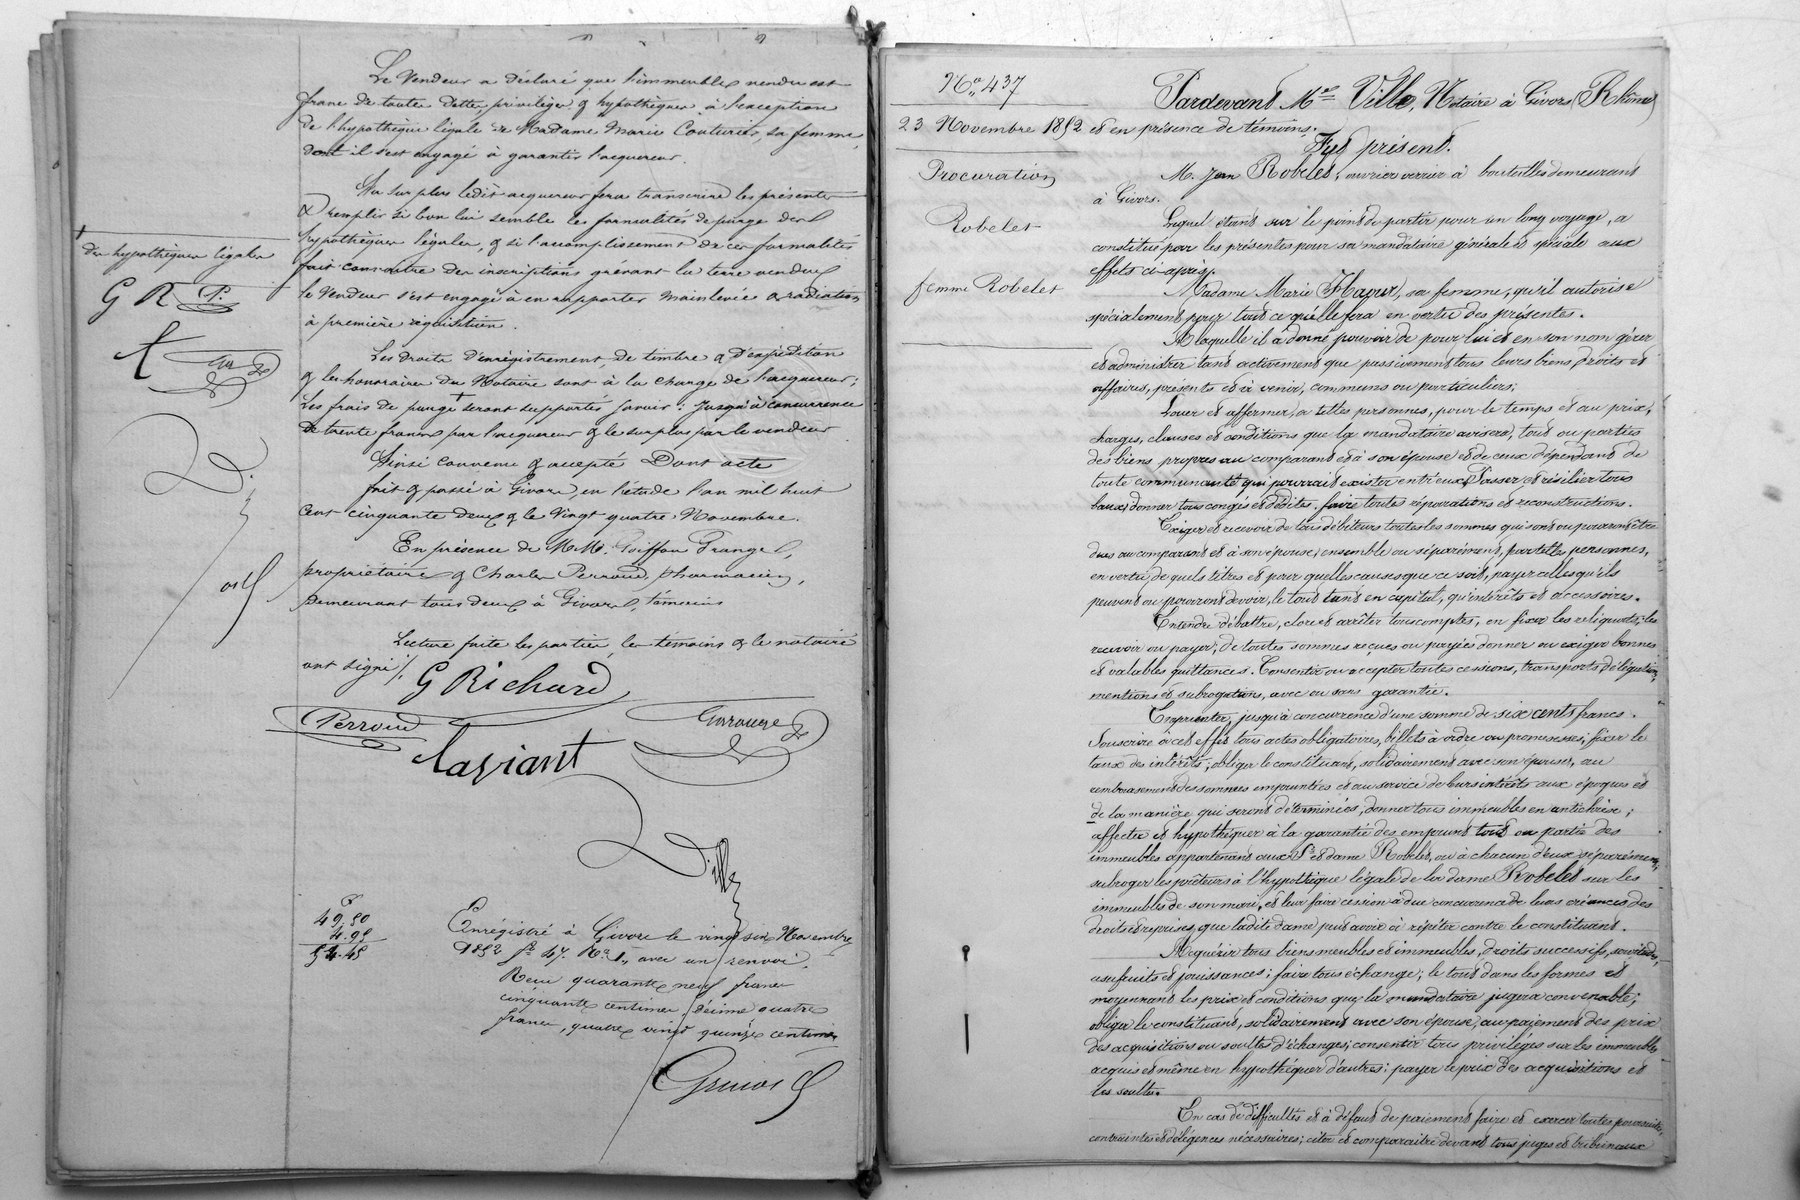 Le Vendeur a déclaré que l'immeuble vendu est
franc de toutes dettes, privilèges & hypothèques à l'exception
de l'hypothèque légale de Madame Marie Couturier, sa femme,
dont il s'est engagé à garantir l'acquéreur.
Au surplus ledit acquéreur fera transcrire les présentes
& remplir si bon lui semble les formalités de purge des
hypothèques légales, & si l'accomplissement de ces formalités
fait connaître des inscriptions grévant la terre vendue
le Vendeur s'est engagé à en rapporter mainlevée & radiation
à première réquisition.
Les droits d'enregistrement, de timbre & d'expédition
& les honoraires du Notaire sont à la charge de l'acquéreur;
Les frais de purge + seront supportés savoir: jusqu'à concurrence
de trente francs par l'acquéreur & le surplus par le vendeur
Ainsi convenu & accepté Dont acte
fait & passé à Givors, en l'étude l'an mil huit
cent cinquante deux & le Vingt quatre Novembre.
En présence de M.M. Goiffon Frangel,
propriétaire & Charles Perroud, pharmacien,
demeurant tous deux à Givors, témoins
Lecture faite les parties, les témoins & le notaire
ont signé /.
+
des hypothèques légales
G R P.
G Richard
Perroud
Ville
49.50
4.95
54.45
Enrégistré à Givors le vingt six Novembre
1852 f° 47. R° 1., avec un renvoi.
Reçu quarante neuf francs
cinquante centimes, Décime quatre
francs, quatre vingt quinze centimes
N° 437
23 Novembre 1852
Procuration
Robelet
femme Robelet
Pardevant Me Ville, Notaire à Givors (Rhône)
et en présence de témoins.
Fut présent.
M. Jean Robelet, ouvrier verrier à bouteilles demeurant
à Givors.
Lequel étant sur le point de partir pour un long voyage, a
constitué par les présentes pour sa mandataire générale et spéciale aux
effets ci-après.
Madame Marie, sa femme, qu'il autorise
spécialement pour tout ce qu'elle fera en vertu des présentes.
A laquelle il a donné pouvoir de pour lui et en son nom gérer
et administrer tant activement que passivement tous leurs biens, droits et
affaires, présents et à venir, communs ou particuliers;
Louer et affermer, à telles personnes, pour le temps et au prix,
charges, clauses et conditions que la mandataire avisera, tout ou parties
des biens propres au comparant et à son épouse et de ceux dépendant de
toute communauté qui pourrait exister entr'eux; Passer et résilier tous
baux, donner tous congés et dédites. faire toutes réparations et reconstructions.
Exiger et recevoir de tous débiteurs toutes les sommes qui sont ou pourront être
dues au comparant et à son épouse, ensemble ou séparément, par telles personnes,
en vertu de quels titres et pour quelles causes que ce soit, payer celles qu'ils
peuvent ou pourront devoir, le tout tant en capital, qu'intérêts et accessoires.
Entendre, débattre, clore et arrêter tous comptes, en fixer les reliquats; les
recevoir ou payer; de toutes sommes reçues ou payées donner ou exiger bonnes
et valables quittances. Consentir ou accepter toutes cessions, transports, délégations,
mentions et subrogations, avec ou sans garantie.
Emprunter, jusqu'à concurrence d'une somme de six cents francs.
Souscrire à cet effet tous actes obligatoires, billets à ordre ou promesses; fixer le
taux des intérêts; obliger le constituant, solidairement avec son épouse, au
remboursement des sommes empruntées et au service de leurs intérêts aux époques et
de la manière qui seront déterminées, donner tous immeubles en antichrèse;
affecter et hypothéquer à la garantie des emprunts tout ou partie des
immeubles appartenant aux Sr et dame Robelet, ou à chacun d'eux séparément;
subroger les prêteurs à l'hypothèque légale de la dame Robelet sur les
immeubles de son mari, et leur faire cession à due concurrence de leurs créances des
droits et reprises que ladite dame peut avoir à répéter contre le constituant.
Acquérir tous biens meubles et immeubles, droits successifs, servitudes,
usufruits et jouissances; faire tous échange; le tout dans les formes et
moyennant les prix et conditions que la mandataire jugera convenable;
obliger le constituant, solidairement avec son épouse, au paiement des prix
des acquisitions ou soultes d'échanges; consentir tous privilèges sur les immeubles
acquis et même en hypothéquer d'autres; payer le prix des acquisitions et
les soultes.
En cas de difficultés et à défaut de paiement faire et exercer toutes poursuites,
contraintes et délégences nécessaires; citer et comparaître devant tous juges et tribunaux